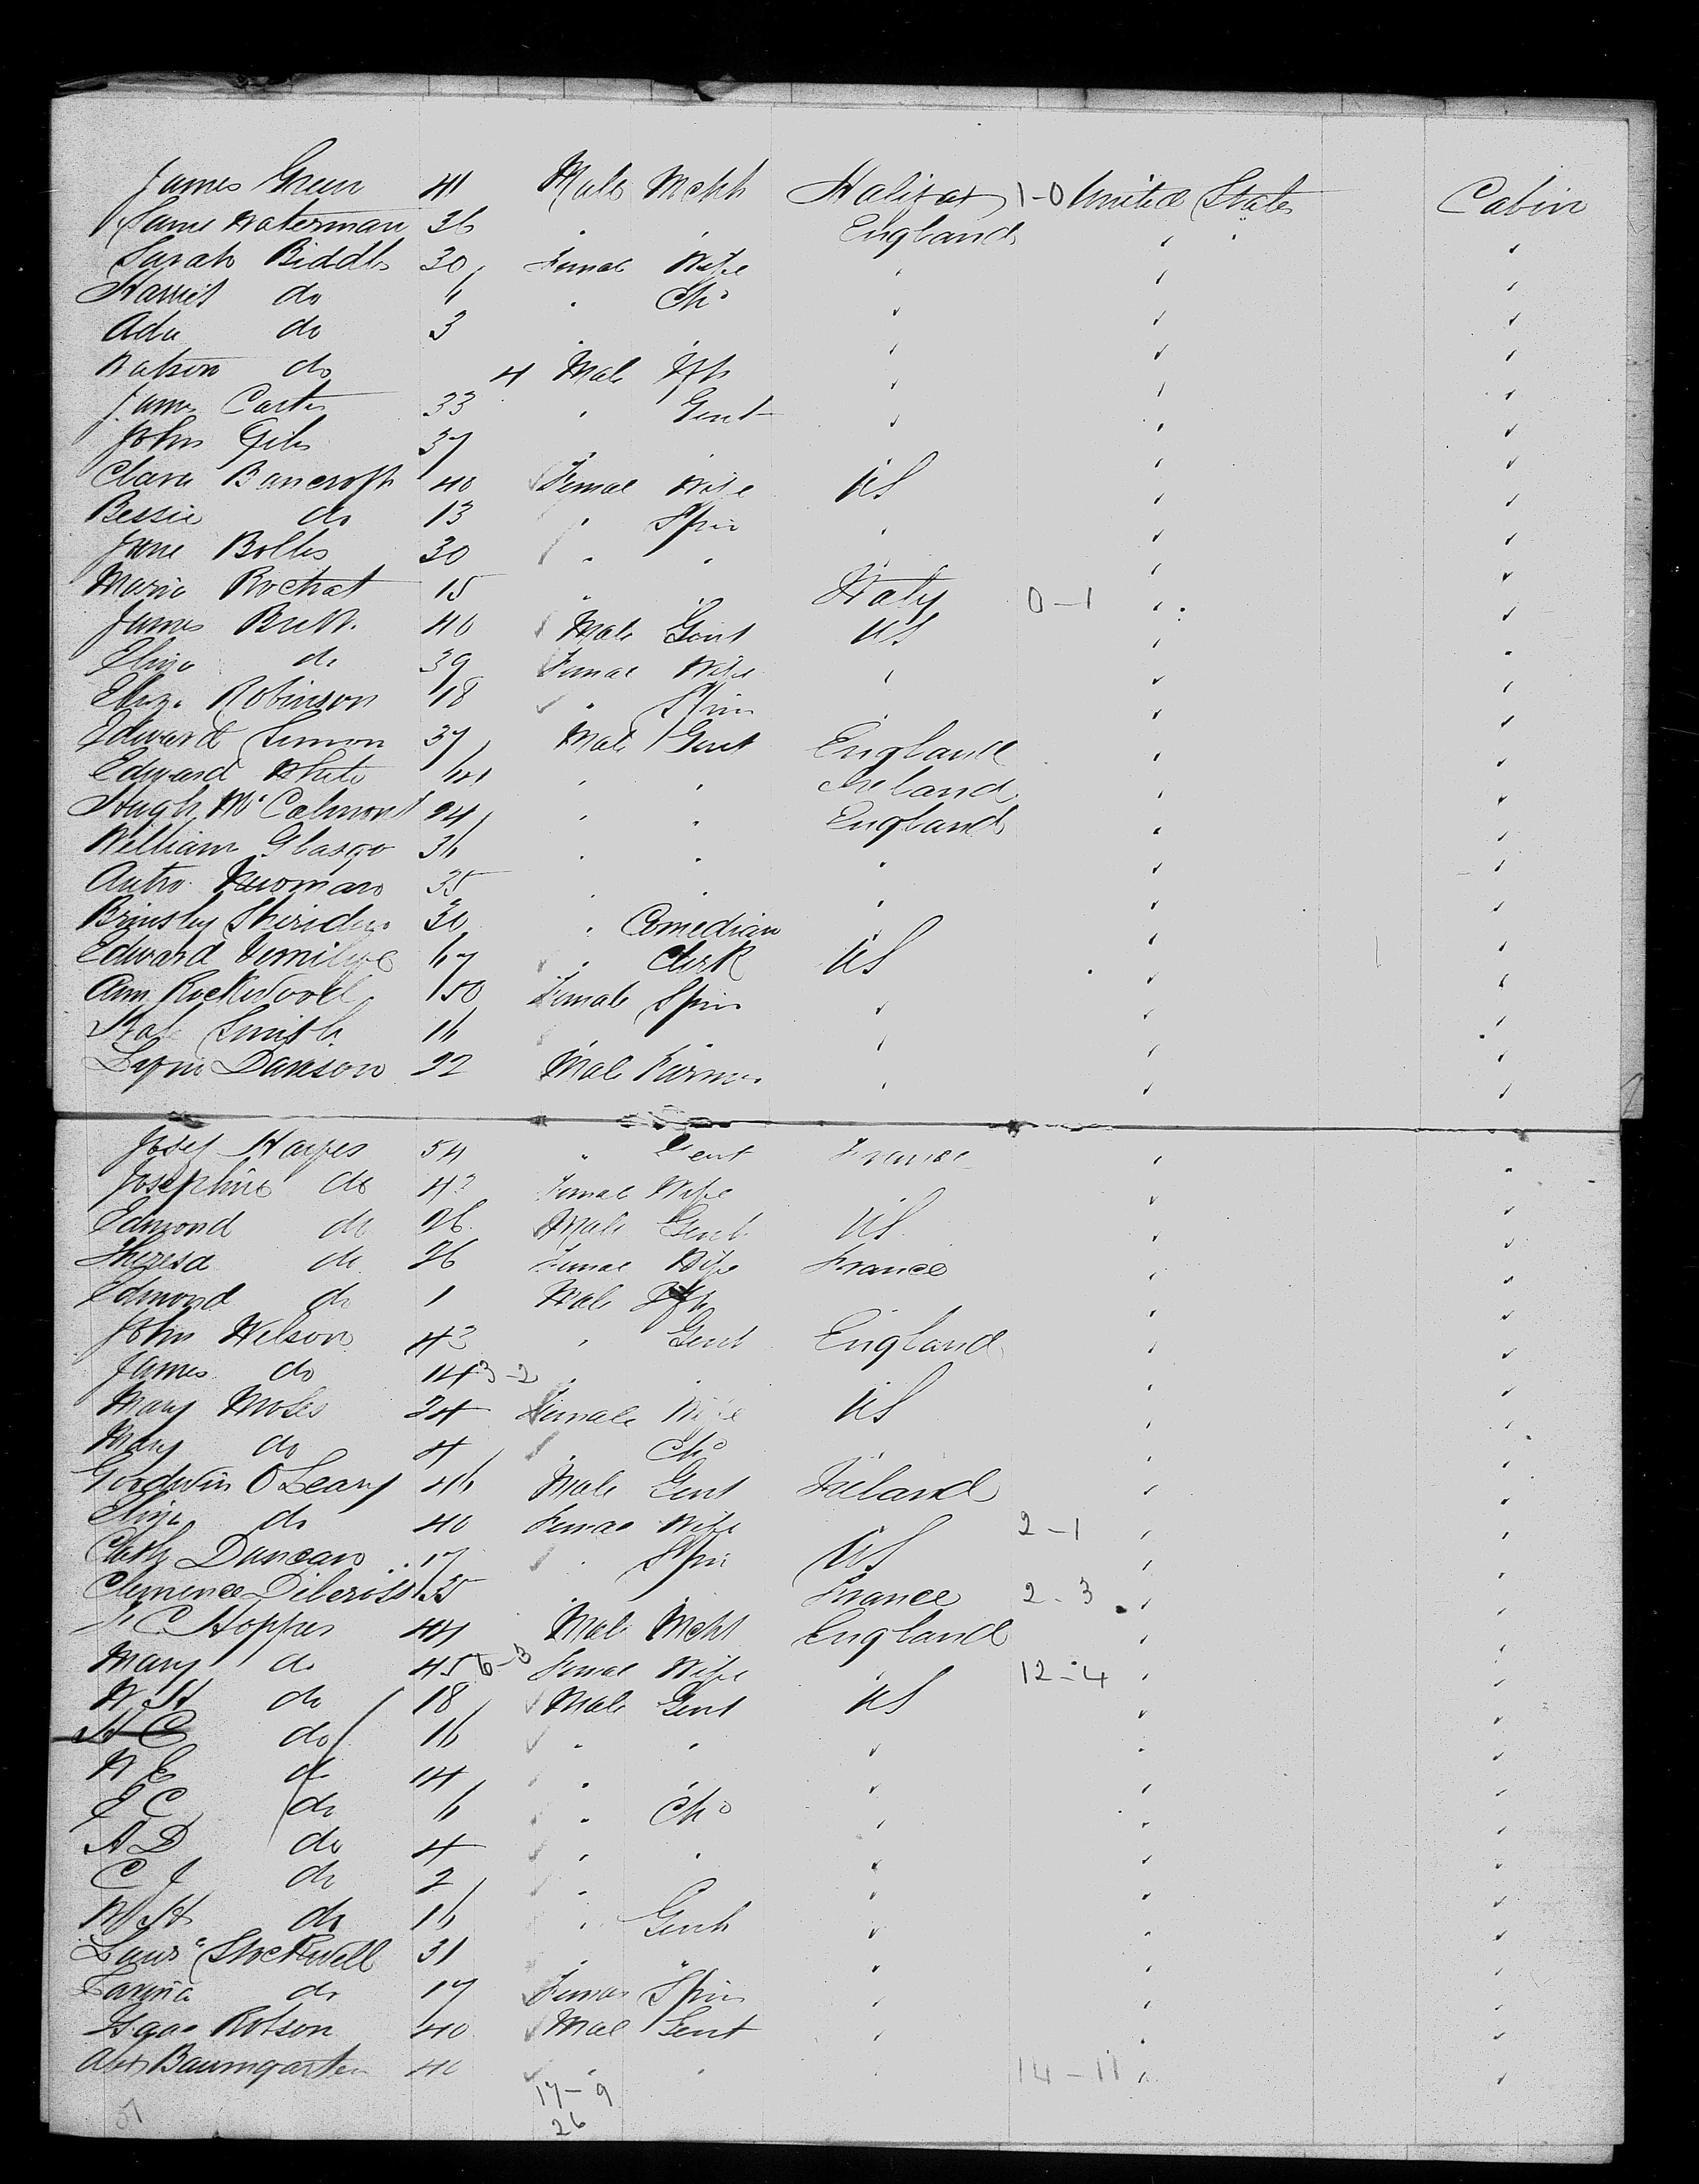 James Green 41 Male Mcht Halifax 1-0 United States Cabin
Waterman 36 " " England " " "
Sarah Biddle 30 Female Wife " " "
Harriet do 6 " Chd " " "
Ada do 3 " " " " "
Watson do 4 Male Inft " " "
James Carter 33 " Gent " " "
John Giles 37 " " " " "
Clara Bancroft 40 Female Wife US " "
Bessie do 13 " Spin " " "
Jane Bolles 30 " " " " "
Maria Rochat 15 " " Italy 0-1 " "
James 40 Male Gent US " "
Eliza do 39 Female Wife " " "
Eliza Robinson 18 " Spin " " "
Edward Simon 37 Male Gent England " "
Edward White " " Ireland " "
Hugh McCalmont 24 " " England " "
William Glasgo 36 " " " " "
35 " " " " "
Brinsley Sheridan 30 " Comedian " " "
Edward Vermilye 67 " Clerk US " "
Ann Rockwood 50 Female Spin " " "
Smith 16 " " " " "
Dawson 22 Male Farmer " " "
Josef Hayes 54 " Gent France " "
Josephine do 42 Female Wife " "
Edmond do 26 Male Gent US " "
Theresa do 26 Female Wife France " "
Edmond do 1 Male Inft " "
John Wilson 42 " Gent England " "
James do 14 3-2 " " " "
Mary Moses 24 Female Wife US " "
Mary do 4 " Chd " "
Goodwin O'Leary 46 Male Gent Ireland " "
Eliza do 40 Female Wife 2-1 " "
Duncan 17 " Spin US " "
Clemence 35 " " France 2-3 " "
C Hoppes 44 Male Mcht England " "
Mary do 45 6-3 Female Wife " 12-4 " "
W H do 18 Male Gent US " "
H C do 16 " " " " "
W E do 14 " " " " "
J C do 6 " Chd " " "
A D do 4 " " " " "
C J do 2 " " " "
W H do 16 " Gent " " "
Stockwell 31 " " " " "
Lavinia do 17 Female Spin " " "
Isaac Rotson 40 Male Gent " " "
Baumgarten 40 " " " 14-11 " "
17-9
26
51